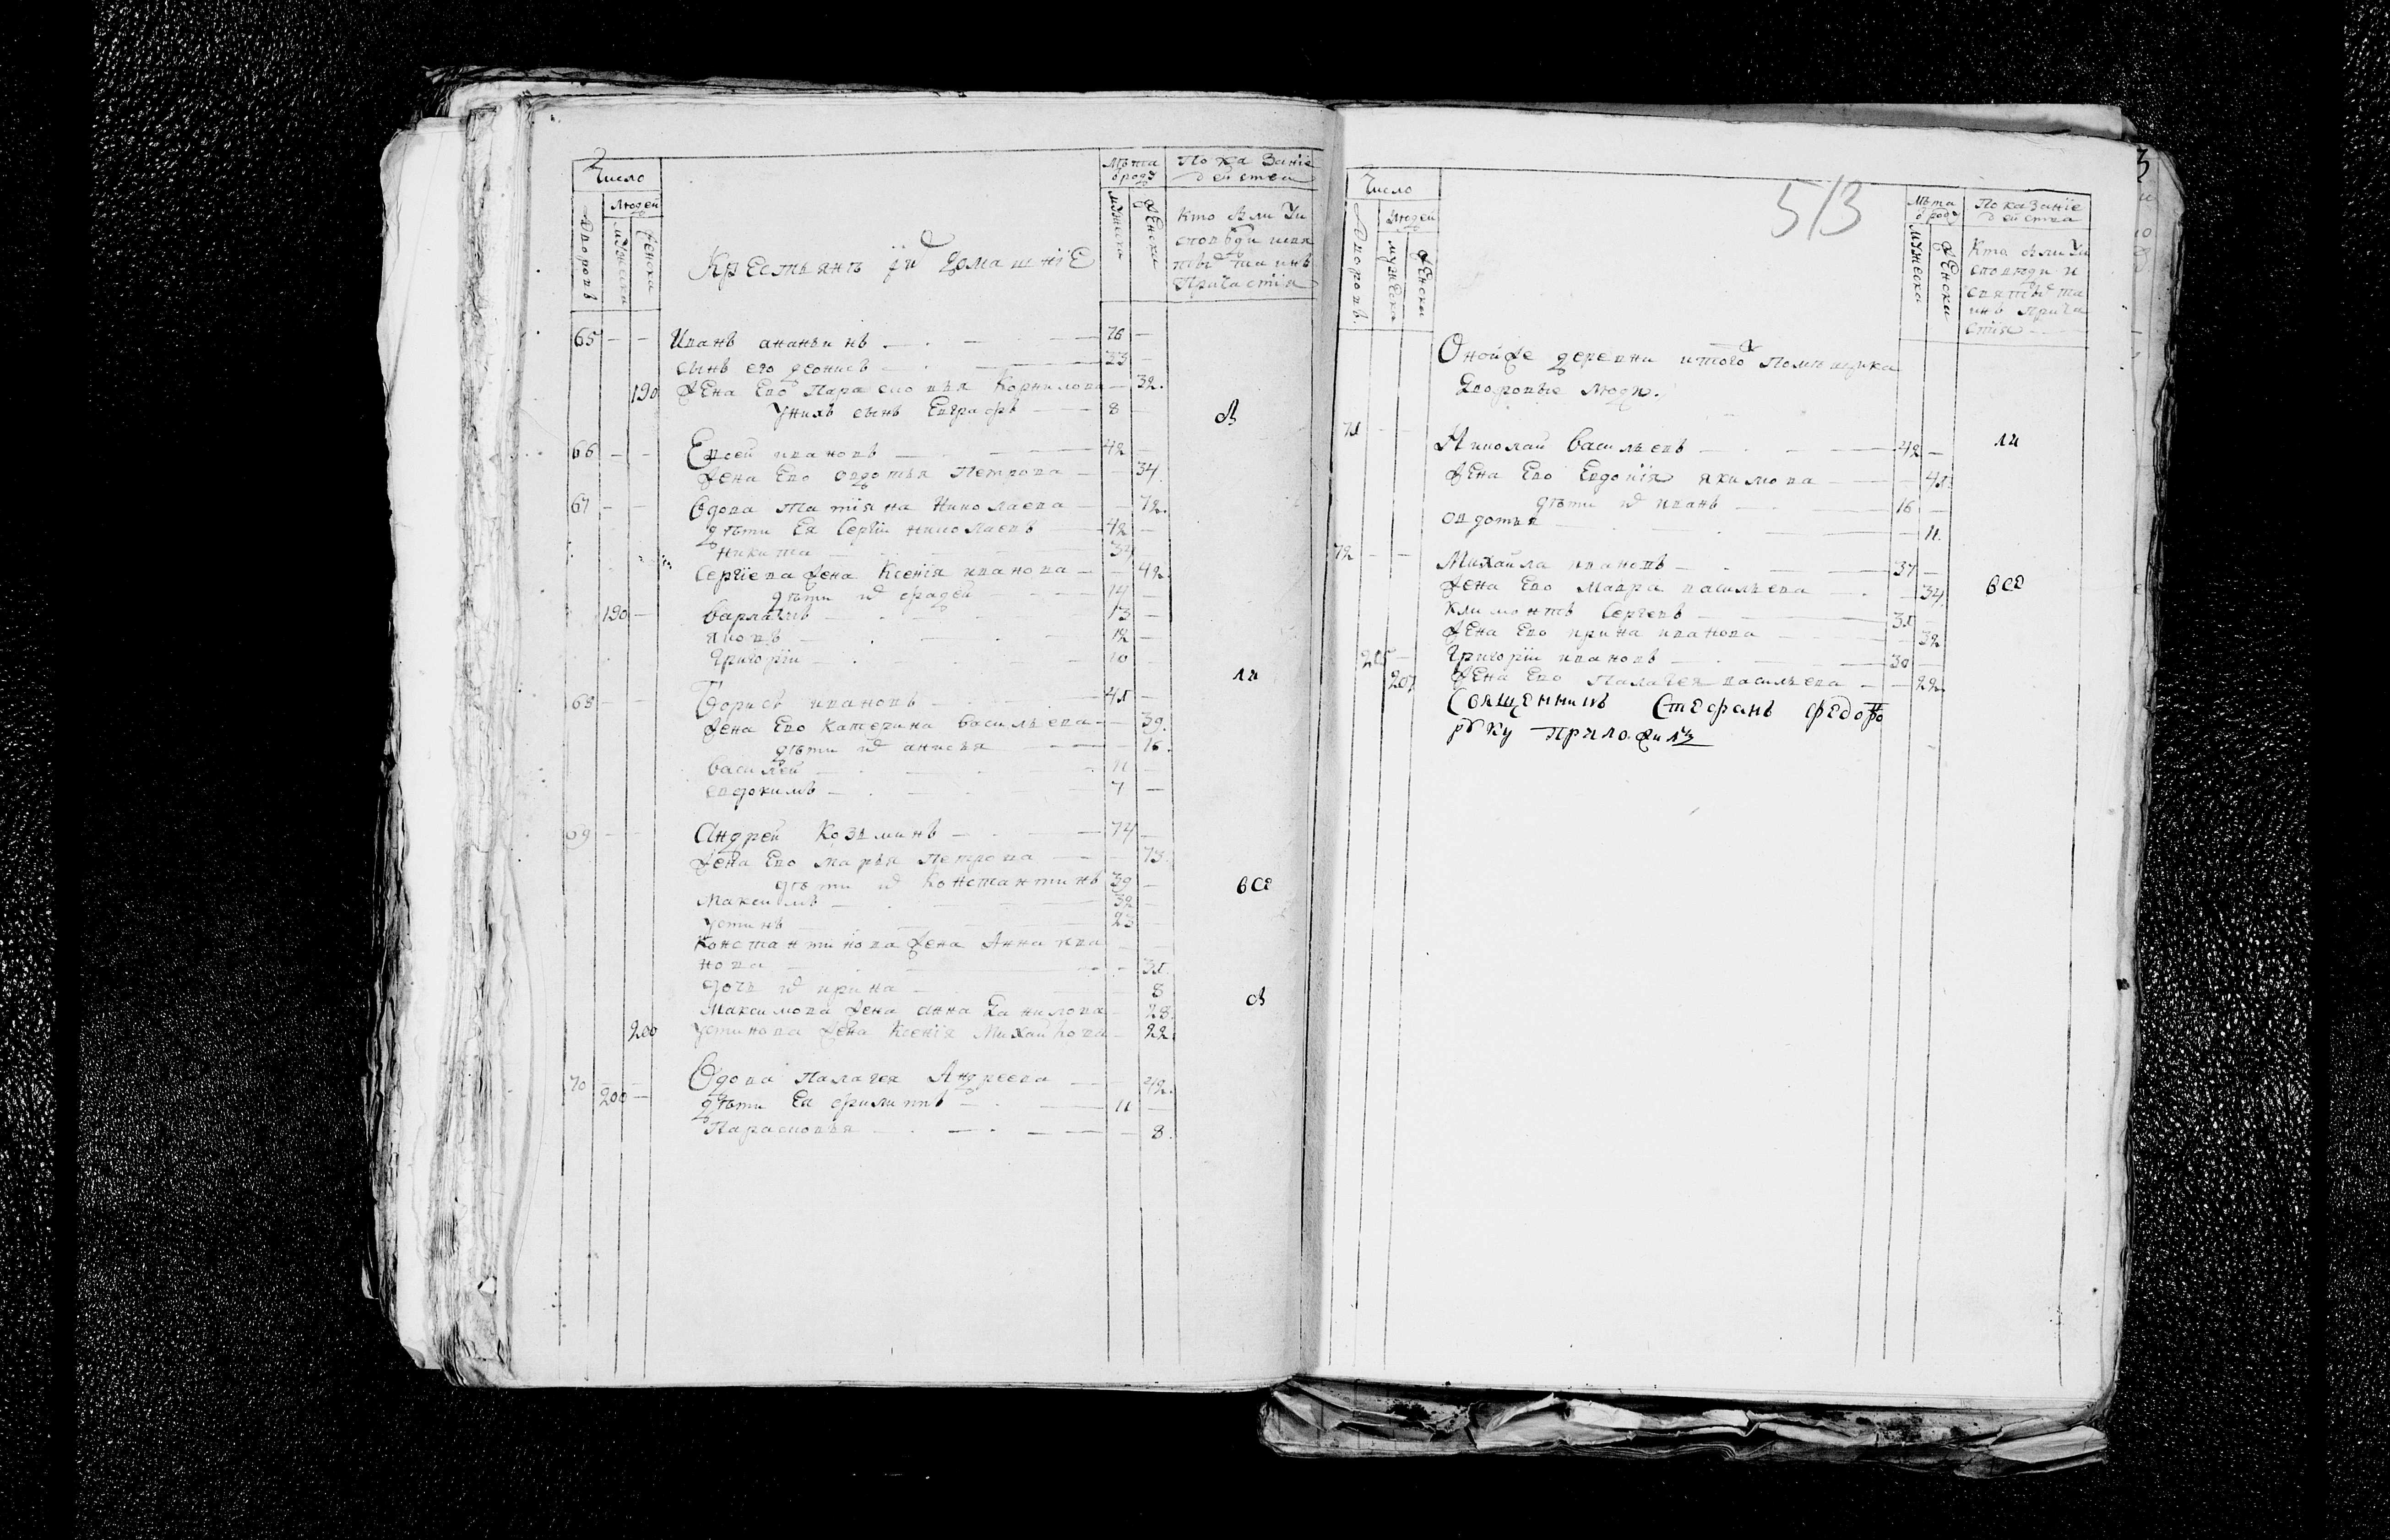 Число
Людей
Дворовъ
мужеска
женска
Крестьянъ ихъ домашнїе
Лѣта
мужеска
женски
По ка Занїе
дѣйства
Кто былъ у и
сповѣди свя
тыхъ таинъ
Причастїя
65 — — Иванъ ананьинъ — 76 —
сынъ его деонисъ — 33 —
190 Жена Ево Парасковья Корнилова — 32.
Унихъ сынъ Евграфъ — 8 —
66 — — Евсей ивановъ — 42 —
Жена Ево овдотья Петрова — 34.
67 — — Вдова Татїяна Николаева — 72.
дѣти Ея Сергїй николаевъ — 42 —
Никита — 34
Сергїева Жена Ксенїя иванова — — 42.
дѣти их фадѣй — 14 —
190 — варламъ — 13 —
яковъ — 12 —
Григорїи — 10
68 — — Борисъ ивановъ — 41 —
Жена Ево Катерина васильева — — 39.
дѣти их анисья — — 16.
василей — 11 —
евдокимъ — 7 —
69 — — Андрей Козминъ — 74 —
Жена Ево марья Петрова — — 73.
дѣти их Константинъ 39 —
Максимъ — 32 —
устинъ — 23 —
Константинова Жена Анна ива
нова — — 31.
дочь их ирина — 8
Максимова Жена анна Данилова — 28.
200 устинова Жена Ксенїя Михайлова — 22.
70 200 — Вдова Палагея Андреева — — 42.
дѣти Ея филиппъ — 11 —
Парасковья — — 8.
ли
все
Число
Людей
Дворовъ
мужеска
женска
513
Лѣта
мужеска
женски
ПоказанЇе
дѣйства
Кто были У и
сповѣди и
святыхъ та
инъ прича
стїя
Онойже деревни итогожъ Помѣщика
Дворовые люди.
71 — — Николай васильевъ — 42 —
ли
Жена Ево Евдокїя якимова — — 41.
дѣти их иванъ — 16 —
овдотья — — 11.
72 — — Михайла ивановъ — 37 —
Жена Ево Мавра васильева — — 34.
все
климонтъ Сергеевъ — 31 —
Жена Ево ирина иванова — 32
205 — Григорїи ивановъ — 30 —
207 Жена Ево Палагея васильева — — 22.
Священникъ Стефанъ федоро
руку приложилъ